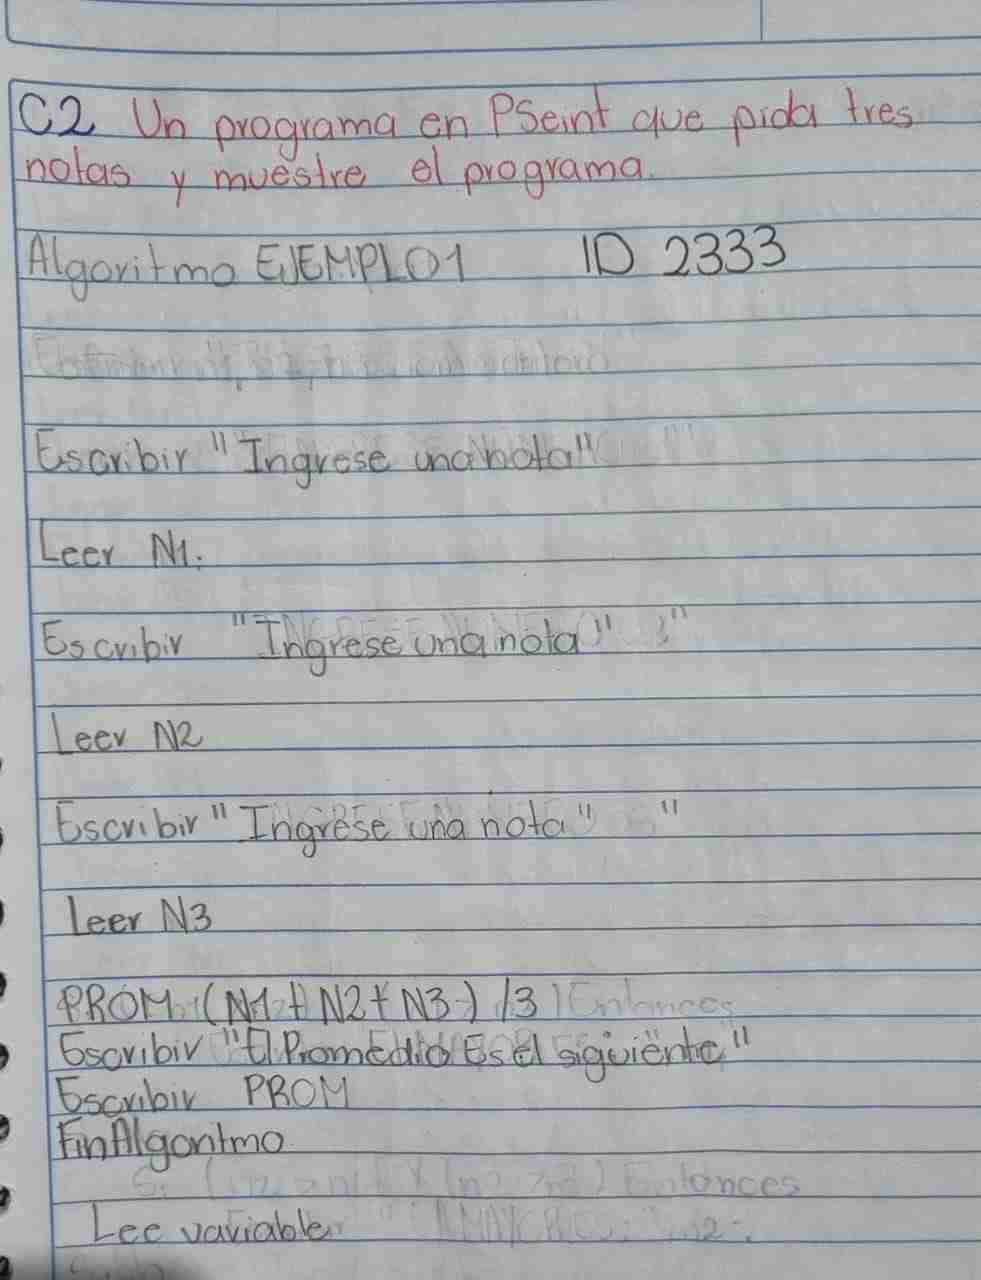 C2 Un programa en PSeint que pida tres
notas y muestre el programa.
Algoritmo EJEMPLO1 ID 2333
Escribir "Ingrese una nota"
Leer N1;
Escribir "Ingrese una nota" ;"
Leer N2
Escribir "Ingrese una nota" "
Leer N3
PROM (N1+N2+N3) /3 ) Entonces
Escribir "El Promedio Es el siguiente"
Escribir PROM
FinAlgoritmo
Entonces
Lee variable